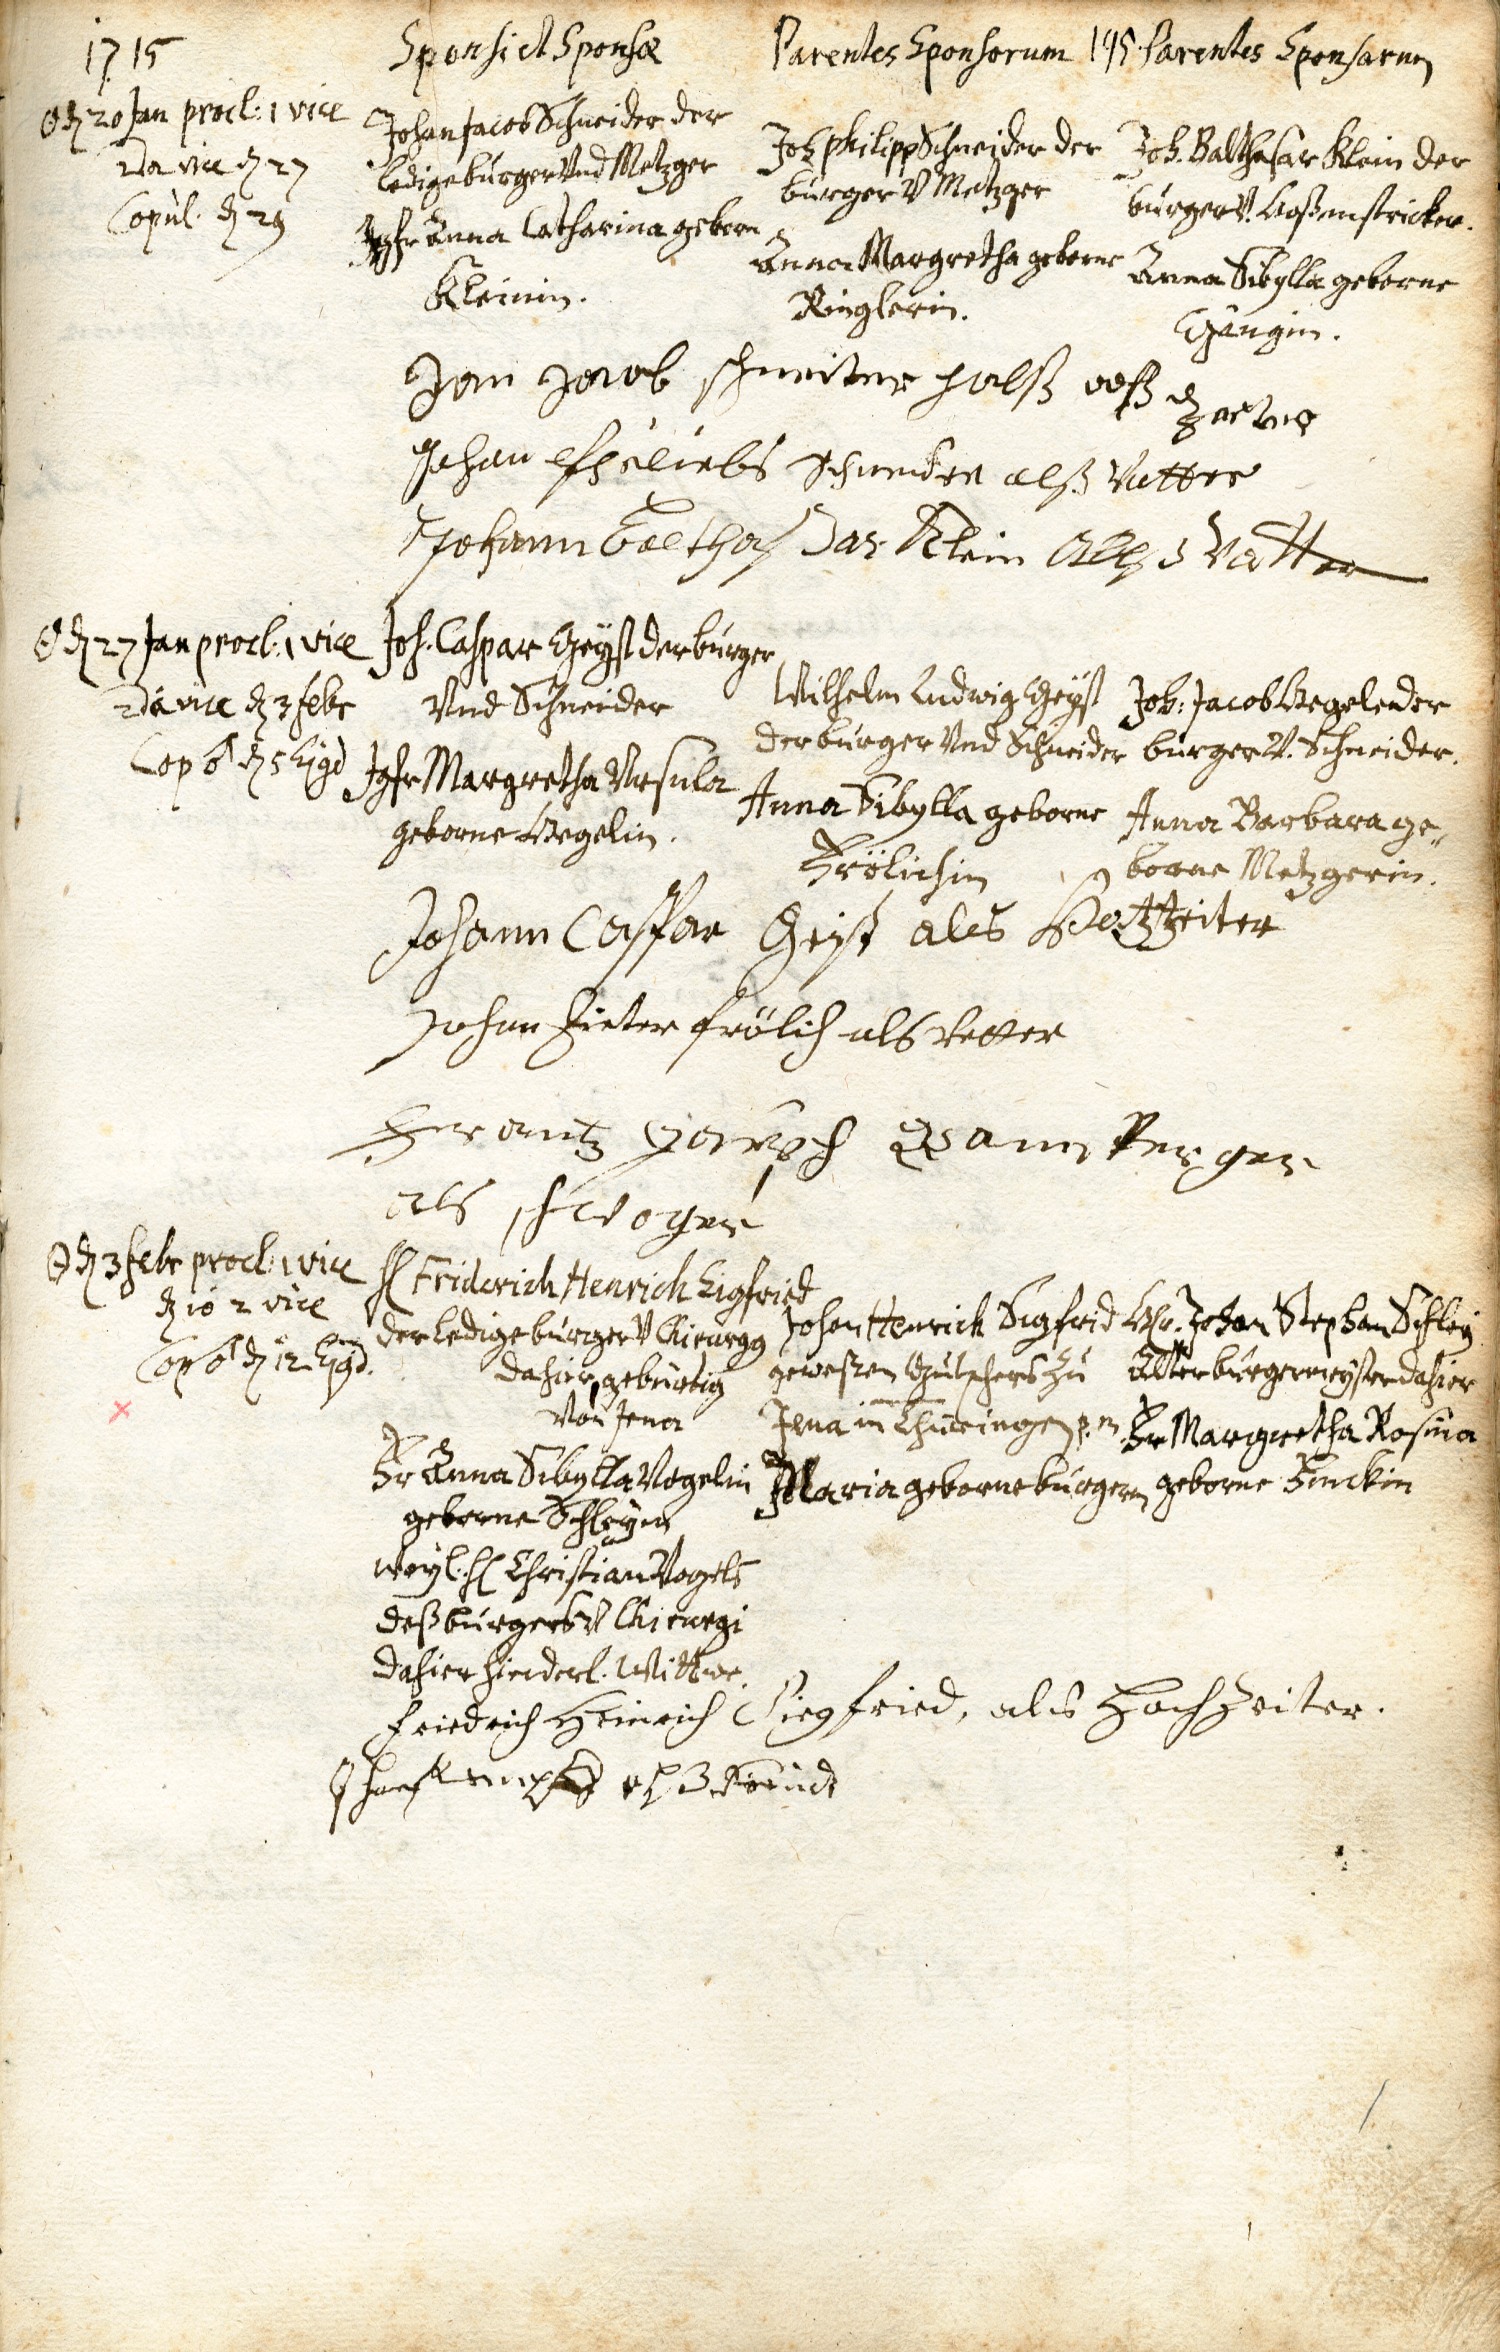 1715
Sponsi et Sponsæ
Parentes Sponsorum
195
Parentes Sponsarum
☉ d 20 Jan procl: 1 vice
2da vice d 27
Copul. d 29
Johan Jacob Schneider der
ledige burger Vnd Metzger
Jgfr Anna Catharina geborn
Kleinin.
Joh Philipp Schneider der
burger V Metzger
Anna Margretha geborne
Ringlerin.
Joh. Balthasar Klein der
burger V. Hoßenstricker.
Anna Sibylla geborne
Gängin.
Jan Jacob schneiter
Johan schneider alß Vatter
Johann Balthas Sar Klein Alß Vatter
☉ d 27 Jan procl: 1 vice
2da vice d 3 febr
Cop ♂ d 5 Ejgd
Joh. Caspar Geyst der burger
Vnd Schneider
Jgfr Margretha Vrsula
geborne Wegelin.
Wilhelm Ludwig Geyst
der burger Vnd Schneider
Anna Sibylla geborne
Frölichin
Joh: Jacob Wegelender
burger V. Schneider.
Anna Barbara ge„
borne Metzgerin.
Johann Casspar Geist als Hochzeiter
Johan Peter frölich als Vetter
als schwoger
☉ d 3 febr procl: 1 vice
d 10 2 vice
Cop ♂ d 12 Ejgd.
H Friderich Henrich Sigfried
der ledige burger V Chirurgg
dahier, gebürtig
Von Jena
Fr Anna Sibylla Vogelin
geborne Schleyin
weyl. H Christian Vogels
deß burgers V Chirurgi
dahier hinderl. Wittwe.
Johan Henrich Sigfrid
gewesen zu
Jena in Thüringen p. m.
Maria geborne burgern
Hr. Johan Stephan Schley
Alter burgermeyster dahier
Fr Margretha Rosina
geborne Finckin
Friedrich Heinrich Siegfried, als Hochzeiter.